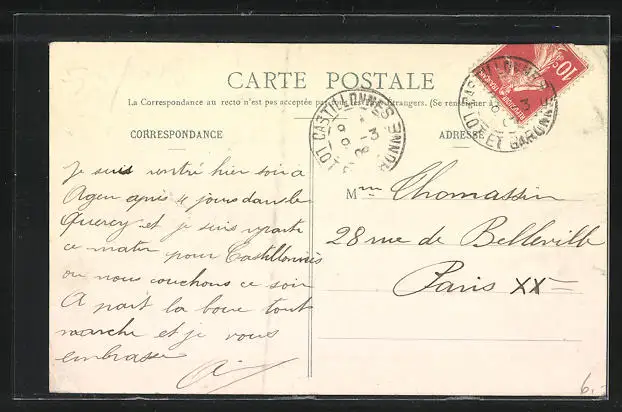 CARTE POSTALE
La Correspondance au recto n'est pas acceptée par tous les pays étrangers. (Se renseigner à
CORRESPONDANCE
ADRESSE
Je suis rentré hier soir à
Agen après 4 jours dans le
Quercy et je suis reparti
ce matin pour Castillonnès
où nous couchons ce soir
A part la boue tout
marche et je vous
embrasse
A
Mme Thomassin
28 rue de Belleville
Paris XXe
CASTILLONNES
LOT ET GARONNE
CASTILLONNES
LOT ET GARONNE
10c
6.-